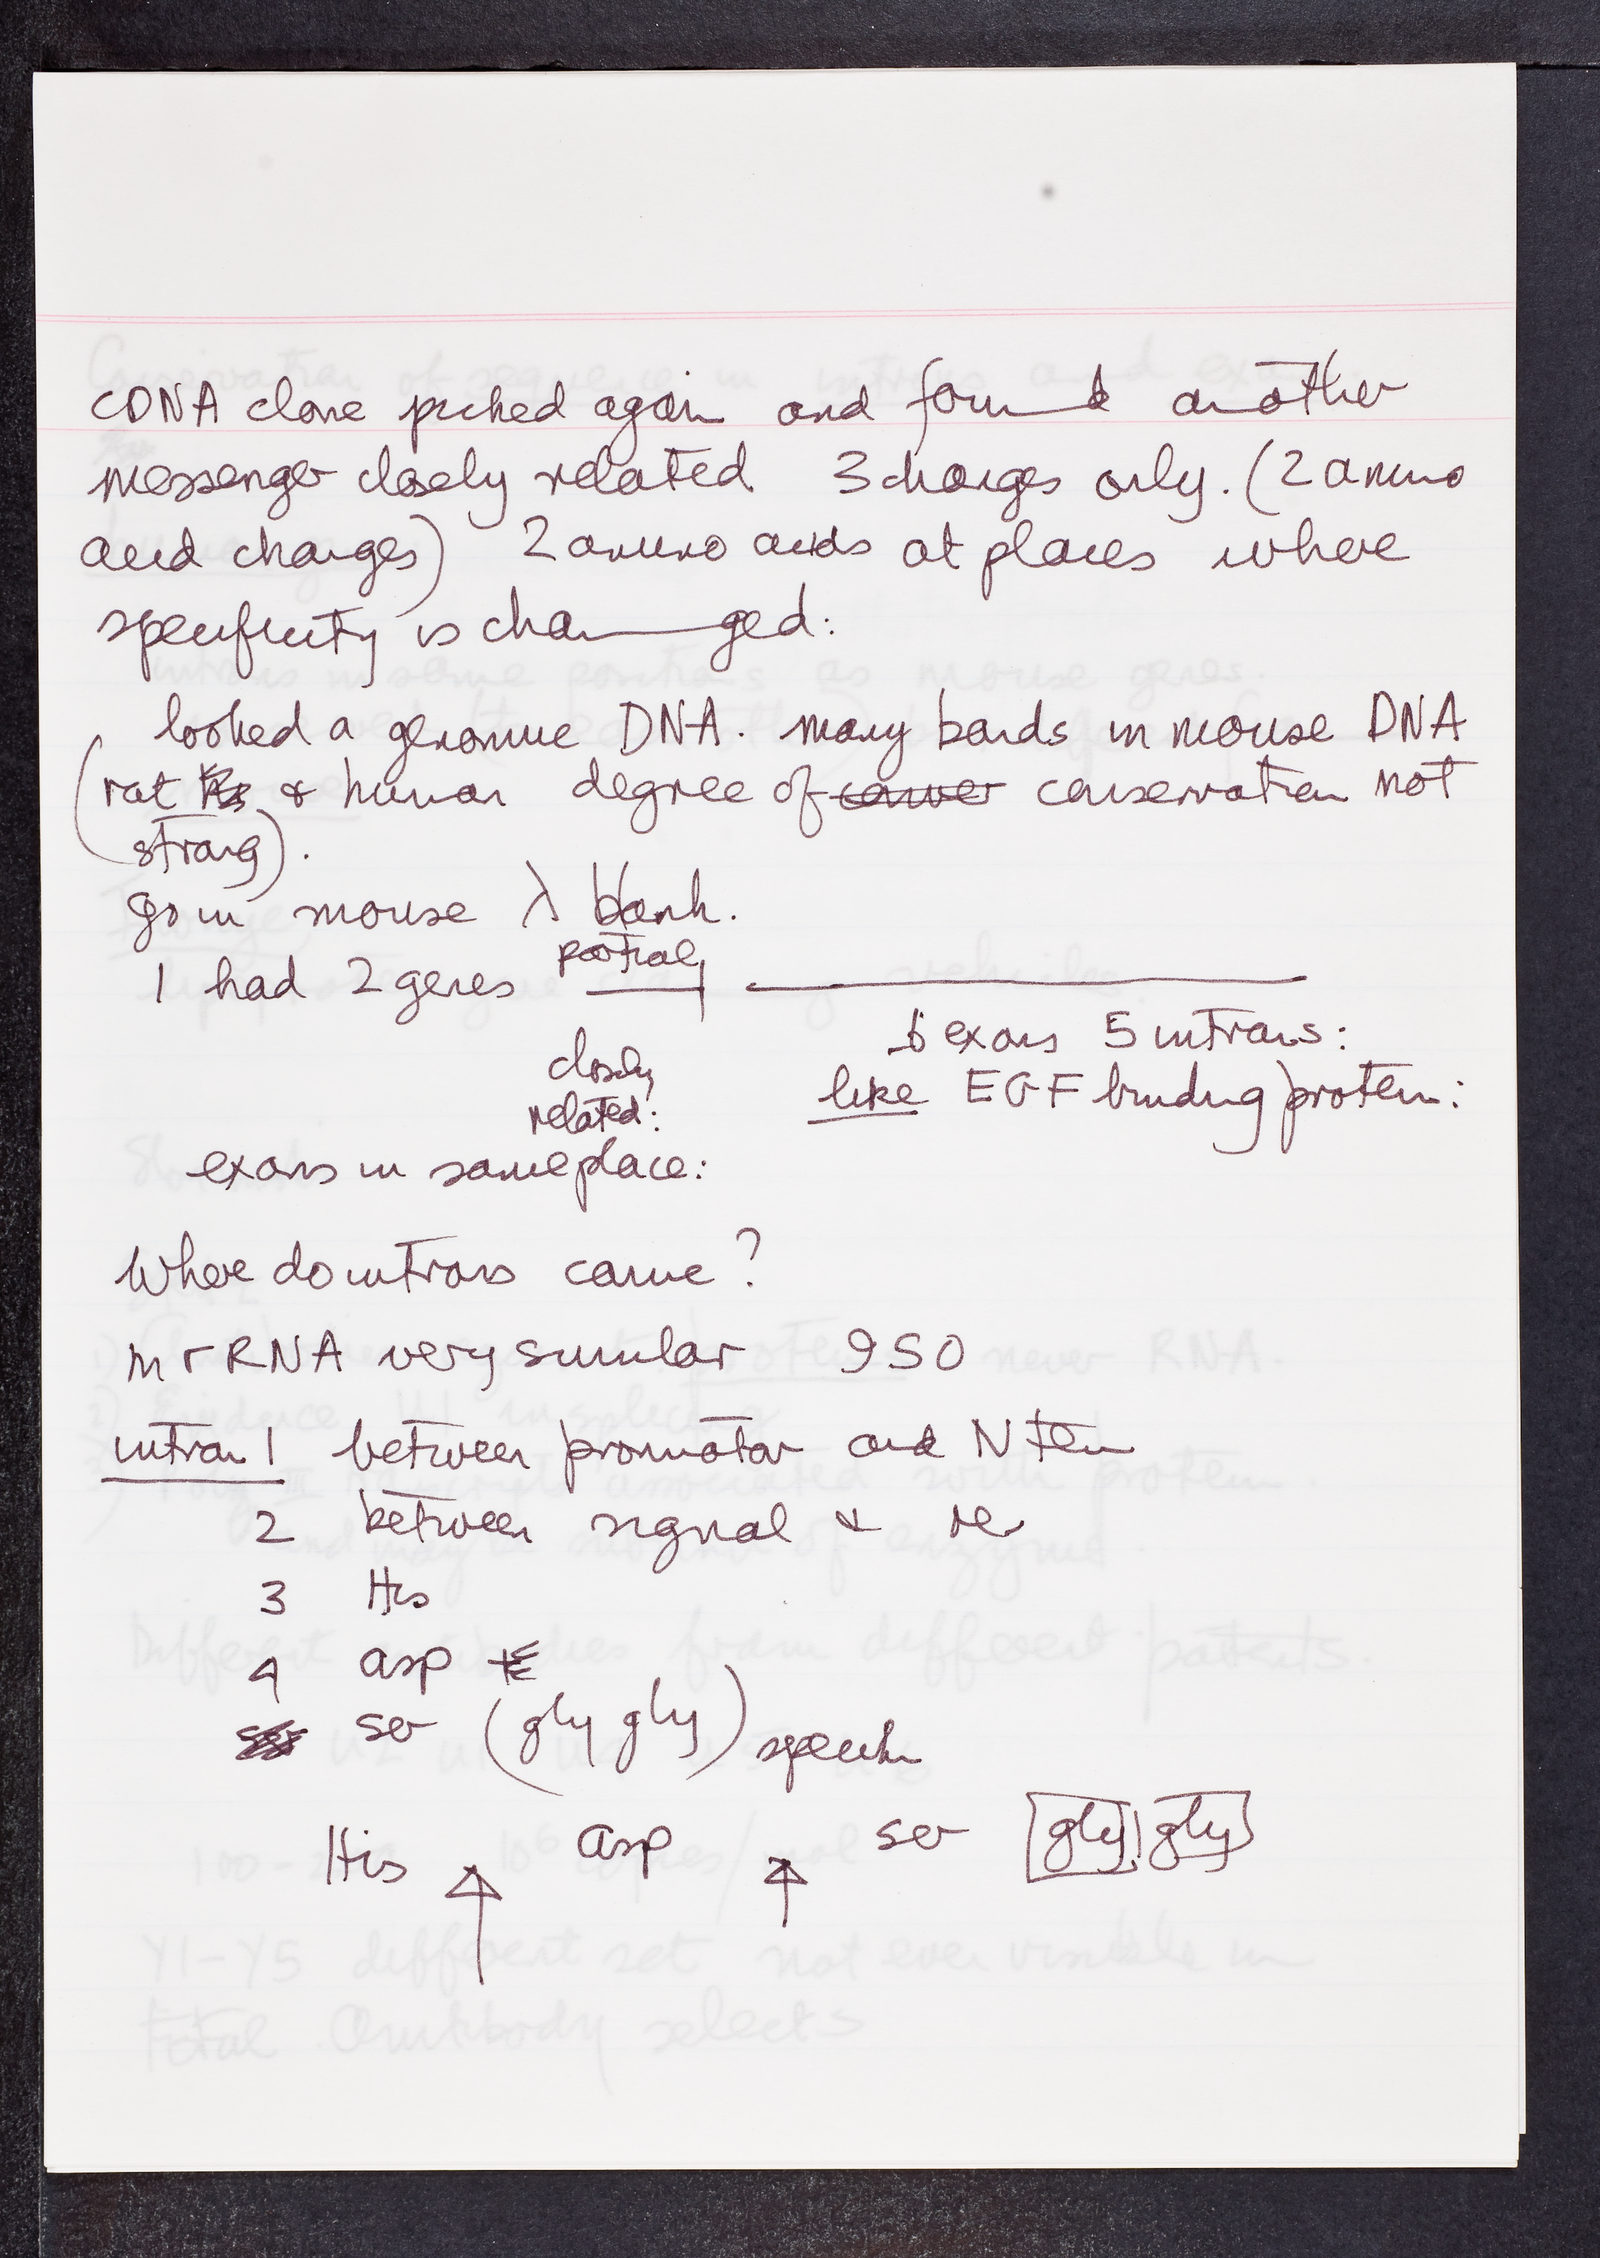 cDNA clone picked again and found another
messenger closely related 3 changes only. (2 amino
acid changes) 2 amino acids at places where
specificity is changed:
looked a genomic DNA. many bands in mouse DNA
(rat & human degree of conver conservation not
strong).
go in mouse λ bank.
1 had 2 genes partial
6 exons 5 introns:
closely
related:
like EGF binding protein:
exons in same place:
Where do introns come?
mrRNA very similar 950
intron 1 between promotor and N term
2 between signal &
3 His
4 asp
ser (gly gly)
His asp ser [gly] gly]